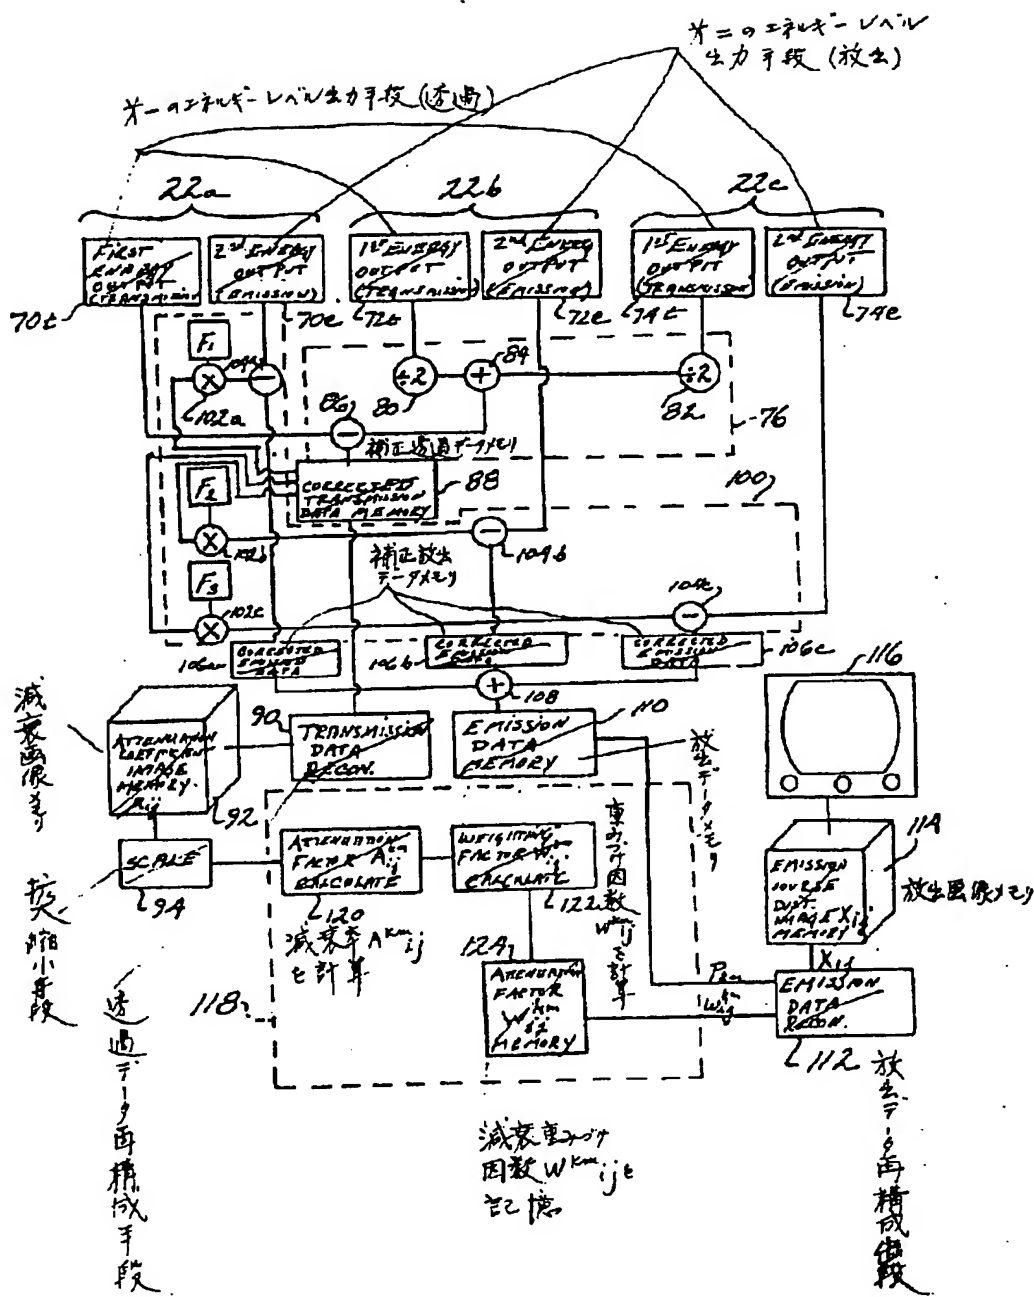 オ二のエネルギーレベル
出力手段(放出)
オ一のエネルギーレベル出力手段(透過)
22a
22b
22c
FIRST
ENERGY
OUTPUT
(TRANSMISSION)
2nd ENERGY
OUTPUT
(EMISSION)
1st ENERGY
OUTPUT
(TRANSMISSION)
2nd ENERGY
OUTPUT
(EMISSION)
1st ENERGY
OUTPUT
(TRANSMISSION)
2nd ENERGY
OUTPUT
(EMISSION)
70t
70e
72t
72e
74t
74e
F1
104a
×
−
102a
÷2
80
+
84
÷2
82
76
86
−
補正透過データメモリ
CORRECTED
TRANSMISSION
DATA MEMORY
88
100
F2
×
102b
−
104b
補正放出
データメモリ
F3
×
102c
−
104c
106a
CORRECTED
EMISSION
DATA
106b
CORRECTED
EMISSION
DATA
CORRECTED
EMISSION
DATA
106c
+
108
116
減衰画像メモリ
ATTENUATION
COEFFICIENT
IMAGE
MEMORY
Rij
92
90
TRANSMISSION
DATA
RECON.
EMISSION
DATA
MEMORY
110
放出データメモリ
SCALE
94
拡大縮小手段
ATTENUATION
FACTOR A km ij
CALCULATE
120
減衰率 A km ij
を計算
WEIGHTING
FACTOR W km ij
CALCULATE
122
重みづけ因数 W km ij を計算
EMISSION
SOURCE
DIST.
IMAGE Xij
MEMORY
114
放出画像メモリ
Xij
124
ATTENUATION
FACTOR
W km ij
MEMORY
Pkm
W km ij
EMISSION
DATA
RECON.
112
118
透過データ再構成手段
減衰重みづけ
因数 W km ij を
記憶
放出データ再構成手段